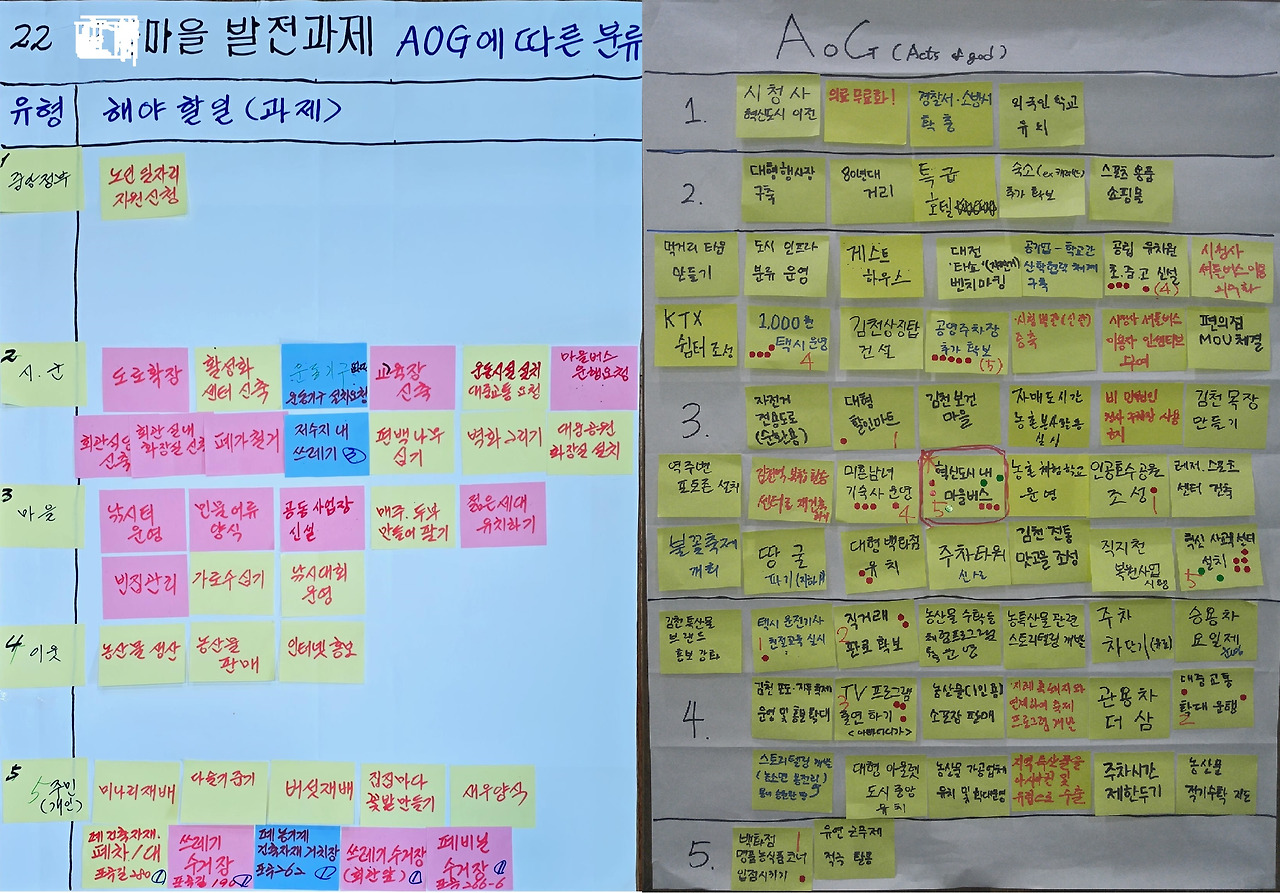 22 마을 발전과제 AOG에 따른 분류
유형 해야 할일 (과제)
1
중앙정부
노인 일자리
지원신청
2
시.군
도로확장
활성화
센터 신축
운동기구
운동기구 설치요청
교육장
신축
운동시설 설치
대중교통 요청
마을버스
운행요청
회관식당
신축
회관 실내
화장실 신축
폐가철거
저수지 내
쓰레기 ②
편백나무
심기
벽화 그리기
대웅공원
화장실 설치
3
마을
낚시터
운영
민물어류
양식
공동 사업장
신설
메주. 두부
만들어 팔기
젊은세대
유치하기
빈집관리
가로수 심기
낚시대회
운영
4 이웃
농산물 생산
농산물
판매
인터넷 홍보
5
5 주민
(개인)
미나리재배
다슬기 줍기
버섯재배
집집마다
꽃밭만들기
새우양식
폐건축자재.
폐차 1대
포죽길 280 ①
쓰레기
수거장
포죽길 196 ①
폐농기계
건축자재 거치장
포죽262 ①
쓰레기 수거장
(회관앞) ①
폐비닐
수거장 ①
포죽266-6
AoG (Acts of god)
1.
시청사
혁신도시 이전
의료 무료화!
경찰서·소방서
확충
외국인 학교
유치
2.
대형행사장
구축
80년대
거리
특급
호텔
숙소(ex 캐라반)
추가 확보
스포츠 용품
쇼핑몰
먹거리 타운
만들기
도시 인프라
분류 운영
게스트
하우스
대전
'타슈'(자전거)
벤치마킹
공기업-학교간
산학협력 체계
구축
공립 유치원
초.중.고 신설
(4)
시청사
셔틀버스이용
의무화
KTX
쉼터 조성
1,000원
택시 운영
4
김천상징탑
건설
공영주차장
추가 확보
(5)
시험별관(신관)
증축
시청사 셔틀버스
이용자 인센티브
부여
편의점
MOU 체결
3.
자전거
전용도로
(순환용)
대형
할인마트
1
김천보건
마을
자매도시간
농촌봉사활동
실시
비 민원인
청사 주차장 사용
금지
김천 목장
만들기
역주변
포토존 설치
김천역.복합환승
센터로 재건축
하기
미혼남녀
기숙사 운영
4
혁신도시 내
마을버스
5
농촌 체험학교
운영
인공호수공원
조성
1
레저.스포츠
센터 건축
불꽃축제
개최
땅굴
파기 (지하)
대형 백화점
유치
주차타워
신설
김천 전통
맛고을 조성
직지천
복원사업
시행
혁신 사교육 센터
설치
5
4.
김천 특산물
브랜드
홍보 강화
택시 운전기사
친절교육 실시
1
직거래
판로 확보
2
농산물 수확등
체험프로그램
운영
농특산물 관련
스토리텔링 개발
주차
차단기(유료)
승용차
요일제
김천 포도·자두축제
운영 및 홍보 확대
TV 프로그램
출연 하기
<아빠어디가>
3
농산물(1인용)
소포장 판매
지례 흑돼지와
연계하여 축제
프로그램 개발
관용차
더 삼
대중교통
확대 운행
2
스토리텔링 개발
대형 아울렛
도시 중앙
유치
농산물 가공업체
유치 및 확대운영
지역 특산물을
아시아권 및
유럽으로 수출
주차시간
제한두기
농산물
적기수확 지도
5.
백화점
명품농식품코너
입점시키기
1
유연 근무제
적극 활용